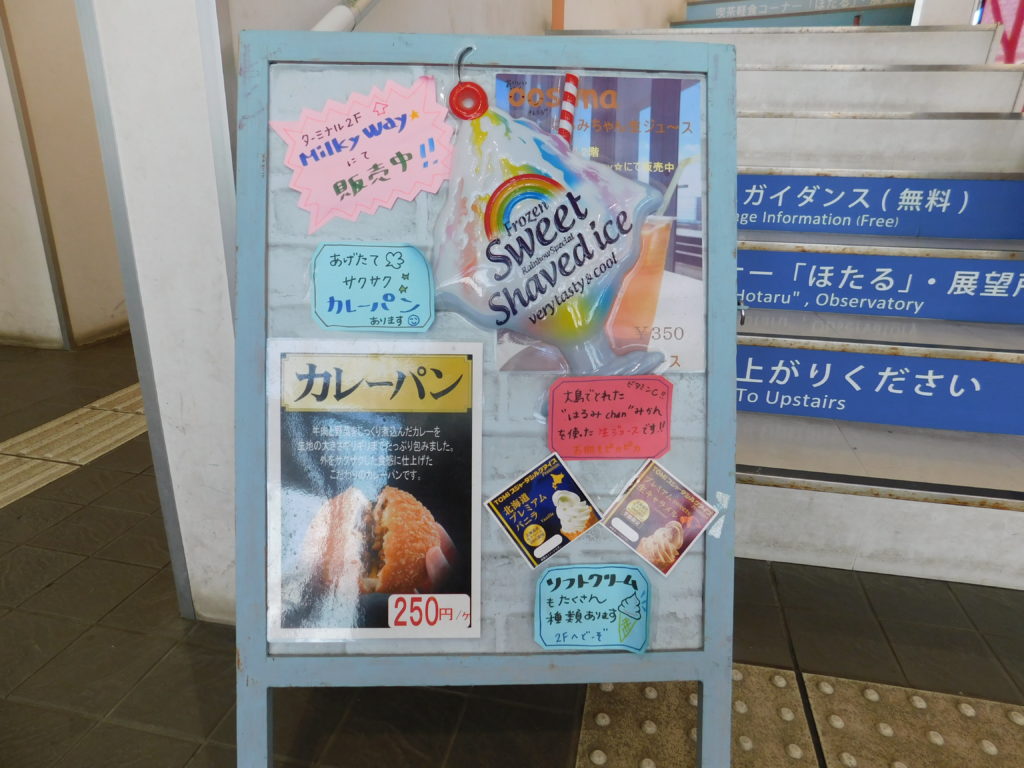 喫茶軽食コーナー「ほたる」・展
ターミナル2F
Milky Way
にて
販売中!!
みちゃん生ジュース
階
にて販売中
Frozen
Sweet
Rainbow Special
Shaved ice
very tasty & cool
¥350
ス
あげたて
サクサク
カレーパン
あります
カレーパン
牛肉と野菜をじっくり煮込んだカレーを
生地の大きさギリギリまでたっぷり包みました。
外をサクサクした食感に仕上げた
こだわりのカレーパンです。
250円/ケ
ビタミンC!!
大島でとれた
"はるみchan"みかん
を使った生ジュースです!!
お肌もピカピカ
TOMIZ スジャータシルクアイス
北海道
プレミアム
バニラ
Vanilla
ソフトクリーム
もたくさん
種類あります
2Fへどーぞ
ガイダンス(無料)
age Information (Free)
ナー「ほたる」・展望所
Hotaru", Observatory
上がりください
To Upstairs